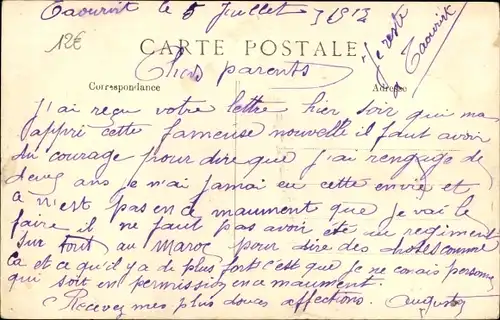 Taourirt le 5 Juillet 1913
12€
CARTE POSTALE
Je reste
a Taourirt
Chers parents
Correspondance
Adresse
J'ai reçu votre lettre hier soir qui ma
appri cette fameuse nouvelle il faut avoir
du courage pour dire que j'ai rengagé de
deux ans je n'ai jamai eu cette envie et
ce n'est pas en ce maument que je vai le
faire il ne faut pas avoir eté au regiment
sur tout au Maroc pour dire des chose comme
Ca et ce qu'il y a de plus fort c'est que je ne conais personne
qui soit en permission en ce maument.
Recevez mes plus douces affections. Auguste